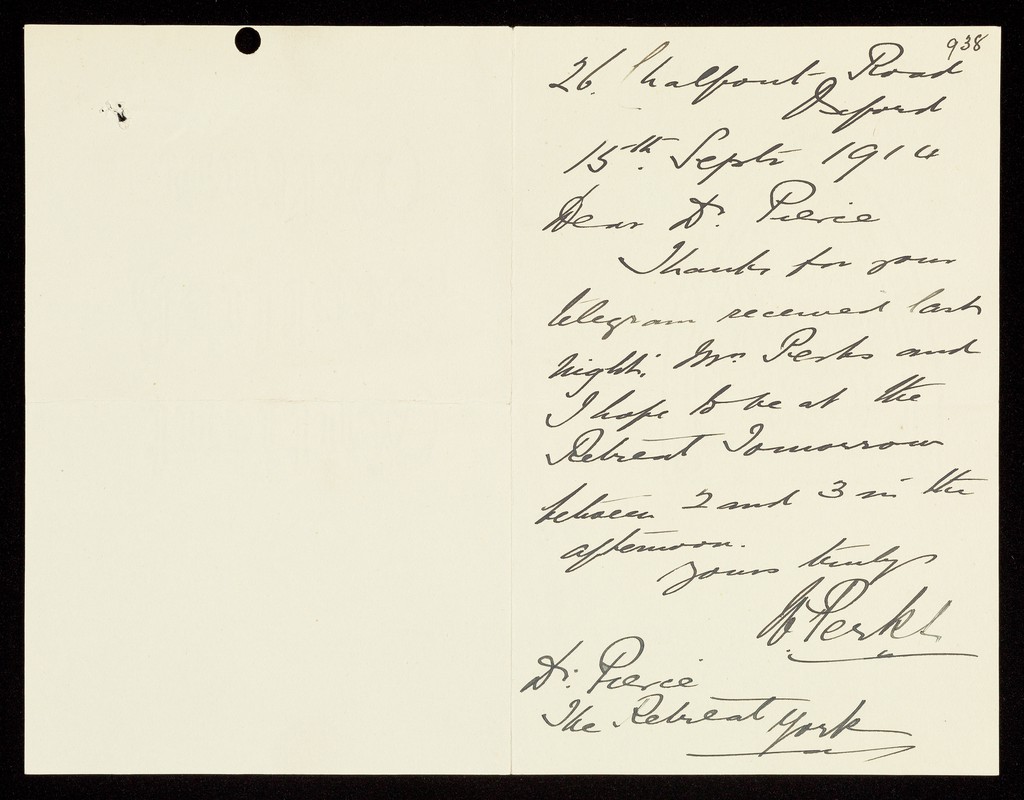 938
26. Chalfont Road
Oxford
15th. Septr 1914
Dear Dr. Pierce
Thanks for your
telegram received last
night; Mrs Perks and
I hope to be at the
Retreat Tomorrow
between 2 and 3 in the
afternoon.
yours truly
W. Perks
Dr. Pierce
The Retreat York